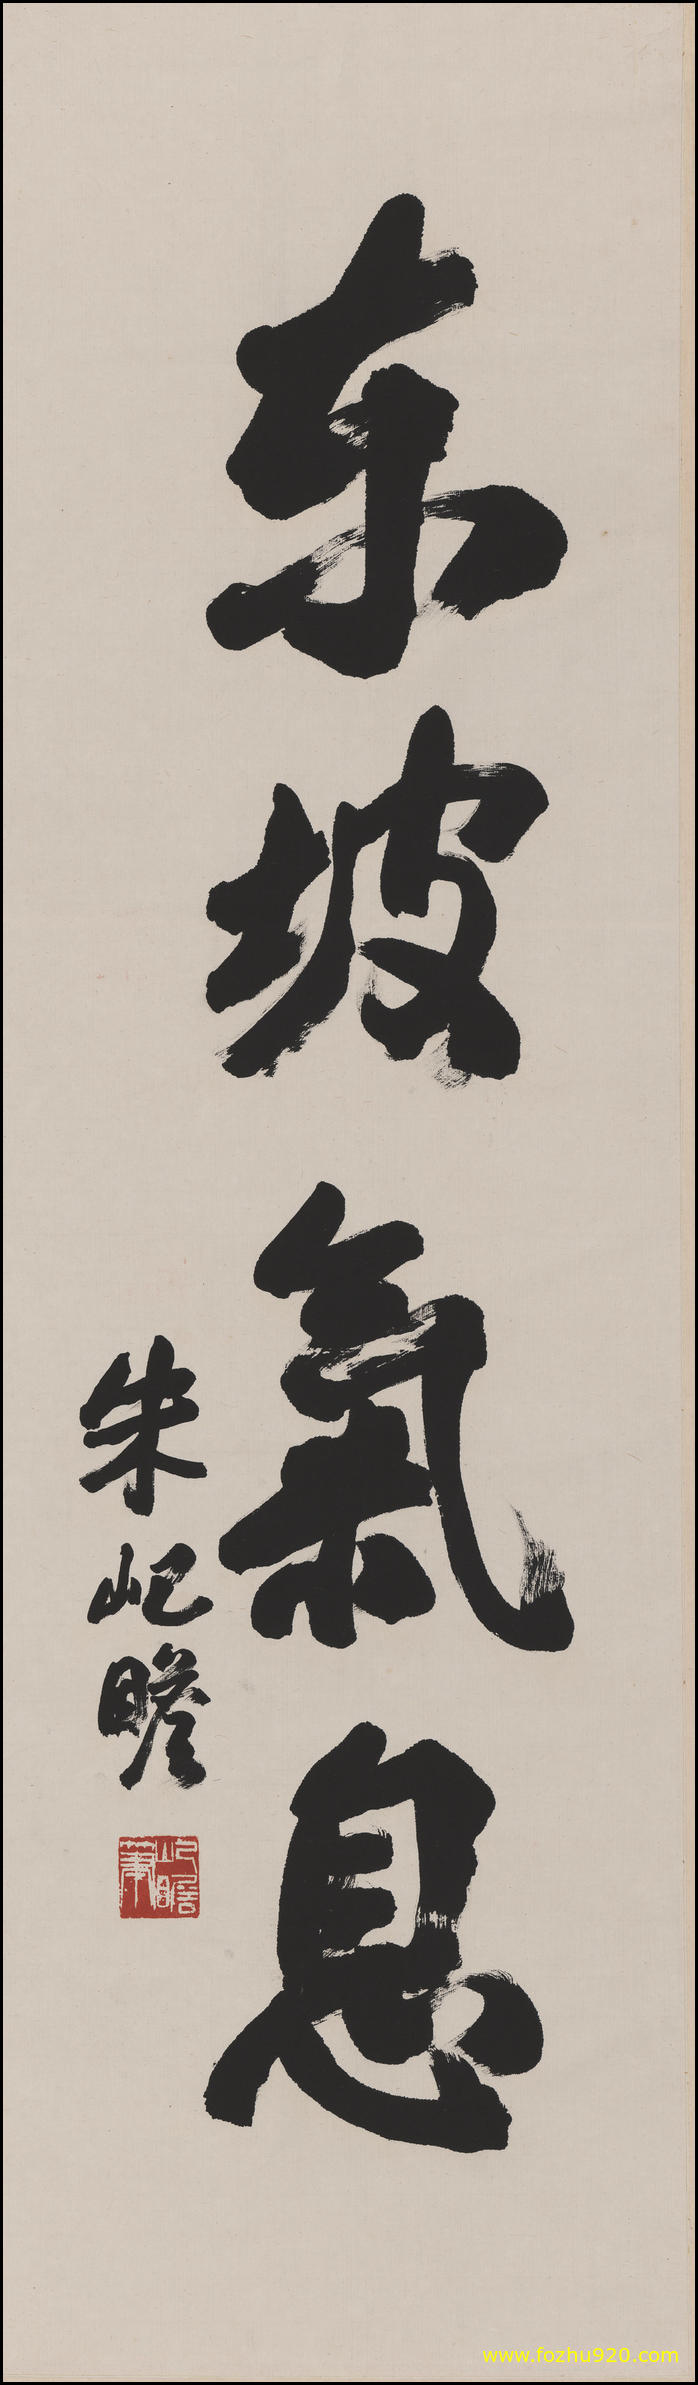 东坡氣息
朱屺瞻
屺瞻
www.fozhu920.com